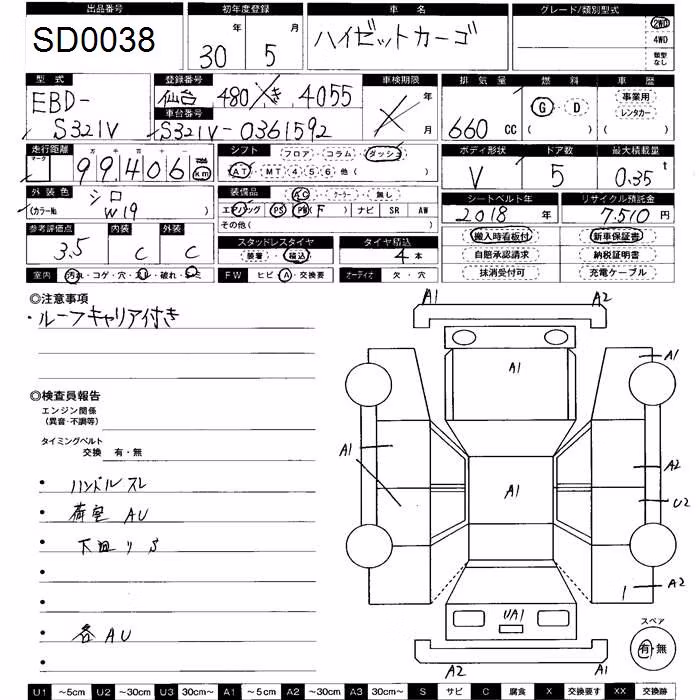 出品番号 初年度登録 車名 グレード/類別型式
SD0038 30年 5月 ハイゼットカーゴ 2WD
4WD
類型なし
型式 登録番号 車検期限 排気量 燃料 車歴
EBD- 仙台 480 き 4055 年 事業用
車台番号 G D レンタカー
S321V S321V-0361592 月 660cc ( ) ( )
走行距離 シフト フロア コラム ダッシュ ボディ形状 ドア数 最大積載量
マーク 99,406 km AT MT 4 5 6 他( ) V 5 0.35t
外装色 シロ 装備品 AC クーラー 無し シートベルト年 リサイクル預託金
(カラーNo. W19 ) エアバッグ PS PW(F) ナビ SR AW 2018年 7,510円
その他( )
参考評価点 内装 外装 スタッドレスタイヤ タイヤ積込 搬入時看板付 新車保証書
3.5 C C 装着・積込 4本 自賠承認請求 納税証明書
室内 汚れ・コゲ・穴・スレ・破れ・シミ FW ヒビ・A・交換要 オーディオ 欠・穴 抹消受付可 充電ケーブル
◎注意事項
・ルーフキャリア付き
◎検査員報告
エンジン関係
(異音・不調等)
タイミングベルト
交換 有・無
・ハンドルスレ
・荷室 AU
・下回り S
・
・
・各AU
・
A1 A2
A1 A1
A1 A1 A2
U2
1 A2
UA1
A2 A1
スペア
有・無
U1 ~5cm U2 ~30cm U3 30cm~ A1 ~5cm A2 ~30cm A3 30cm~ S サビ C 腐食 X 交換要す XX 交換跡